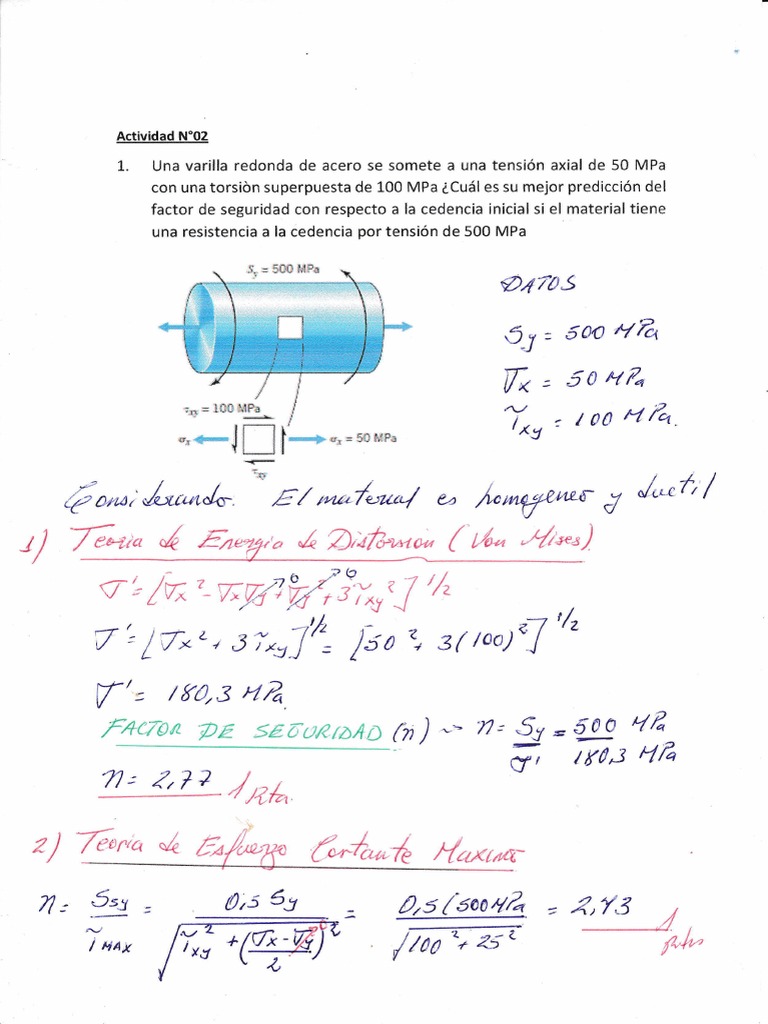 Actividad N°02
1. Una varilla redonda de acero se somete a una tensión axial de 50 MPa
con una torsiòn superpuesta de 100 MPa ¿Cuál es su mejor predicción del
factor de seguridad con respecto a la cedencia inicial si el material tiene
una resistencia a la cedencia por tensión de 500 MPa
Sy = 500 MPa
τxy = 100 MPa
σx
σx = 50 MPa
τxy
DATOS
Sy = 500 MPa
σx = 50 MPa
τxy = 100 MPa.
Considerando. El material es homogeneo y ductil
1) Teoria de Energia de Distorsión (Von Mises).
σ' = [σx² - σxσy + σy² + 3τxy²]^1/2
0 0
σ' = [σx² + 3τxy]^1/2 = [50² + 3(100)²]^1/2
σ' = 180,3 MPa.
FACTOR DE SEGURIDAD (n) ~ n = Sy/σ' = 500 MPa/180,3 MPa
n = 2,77 Rta.
2) Teoria de Esfuerzo Cortante Maximo
n = Ssy/τMAX = 0,5 Sy/√(τxy² + ((σx - σy)/2)²) = 0,5(500MPa/√(100² + 25²) = 2,43
0